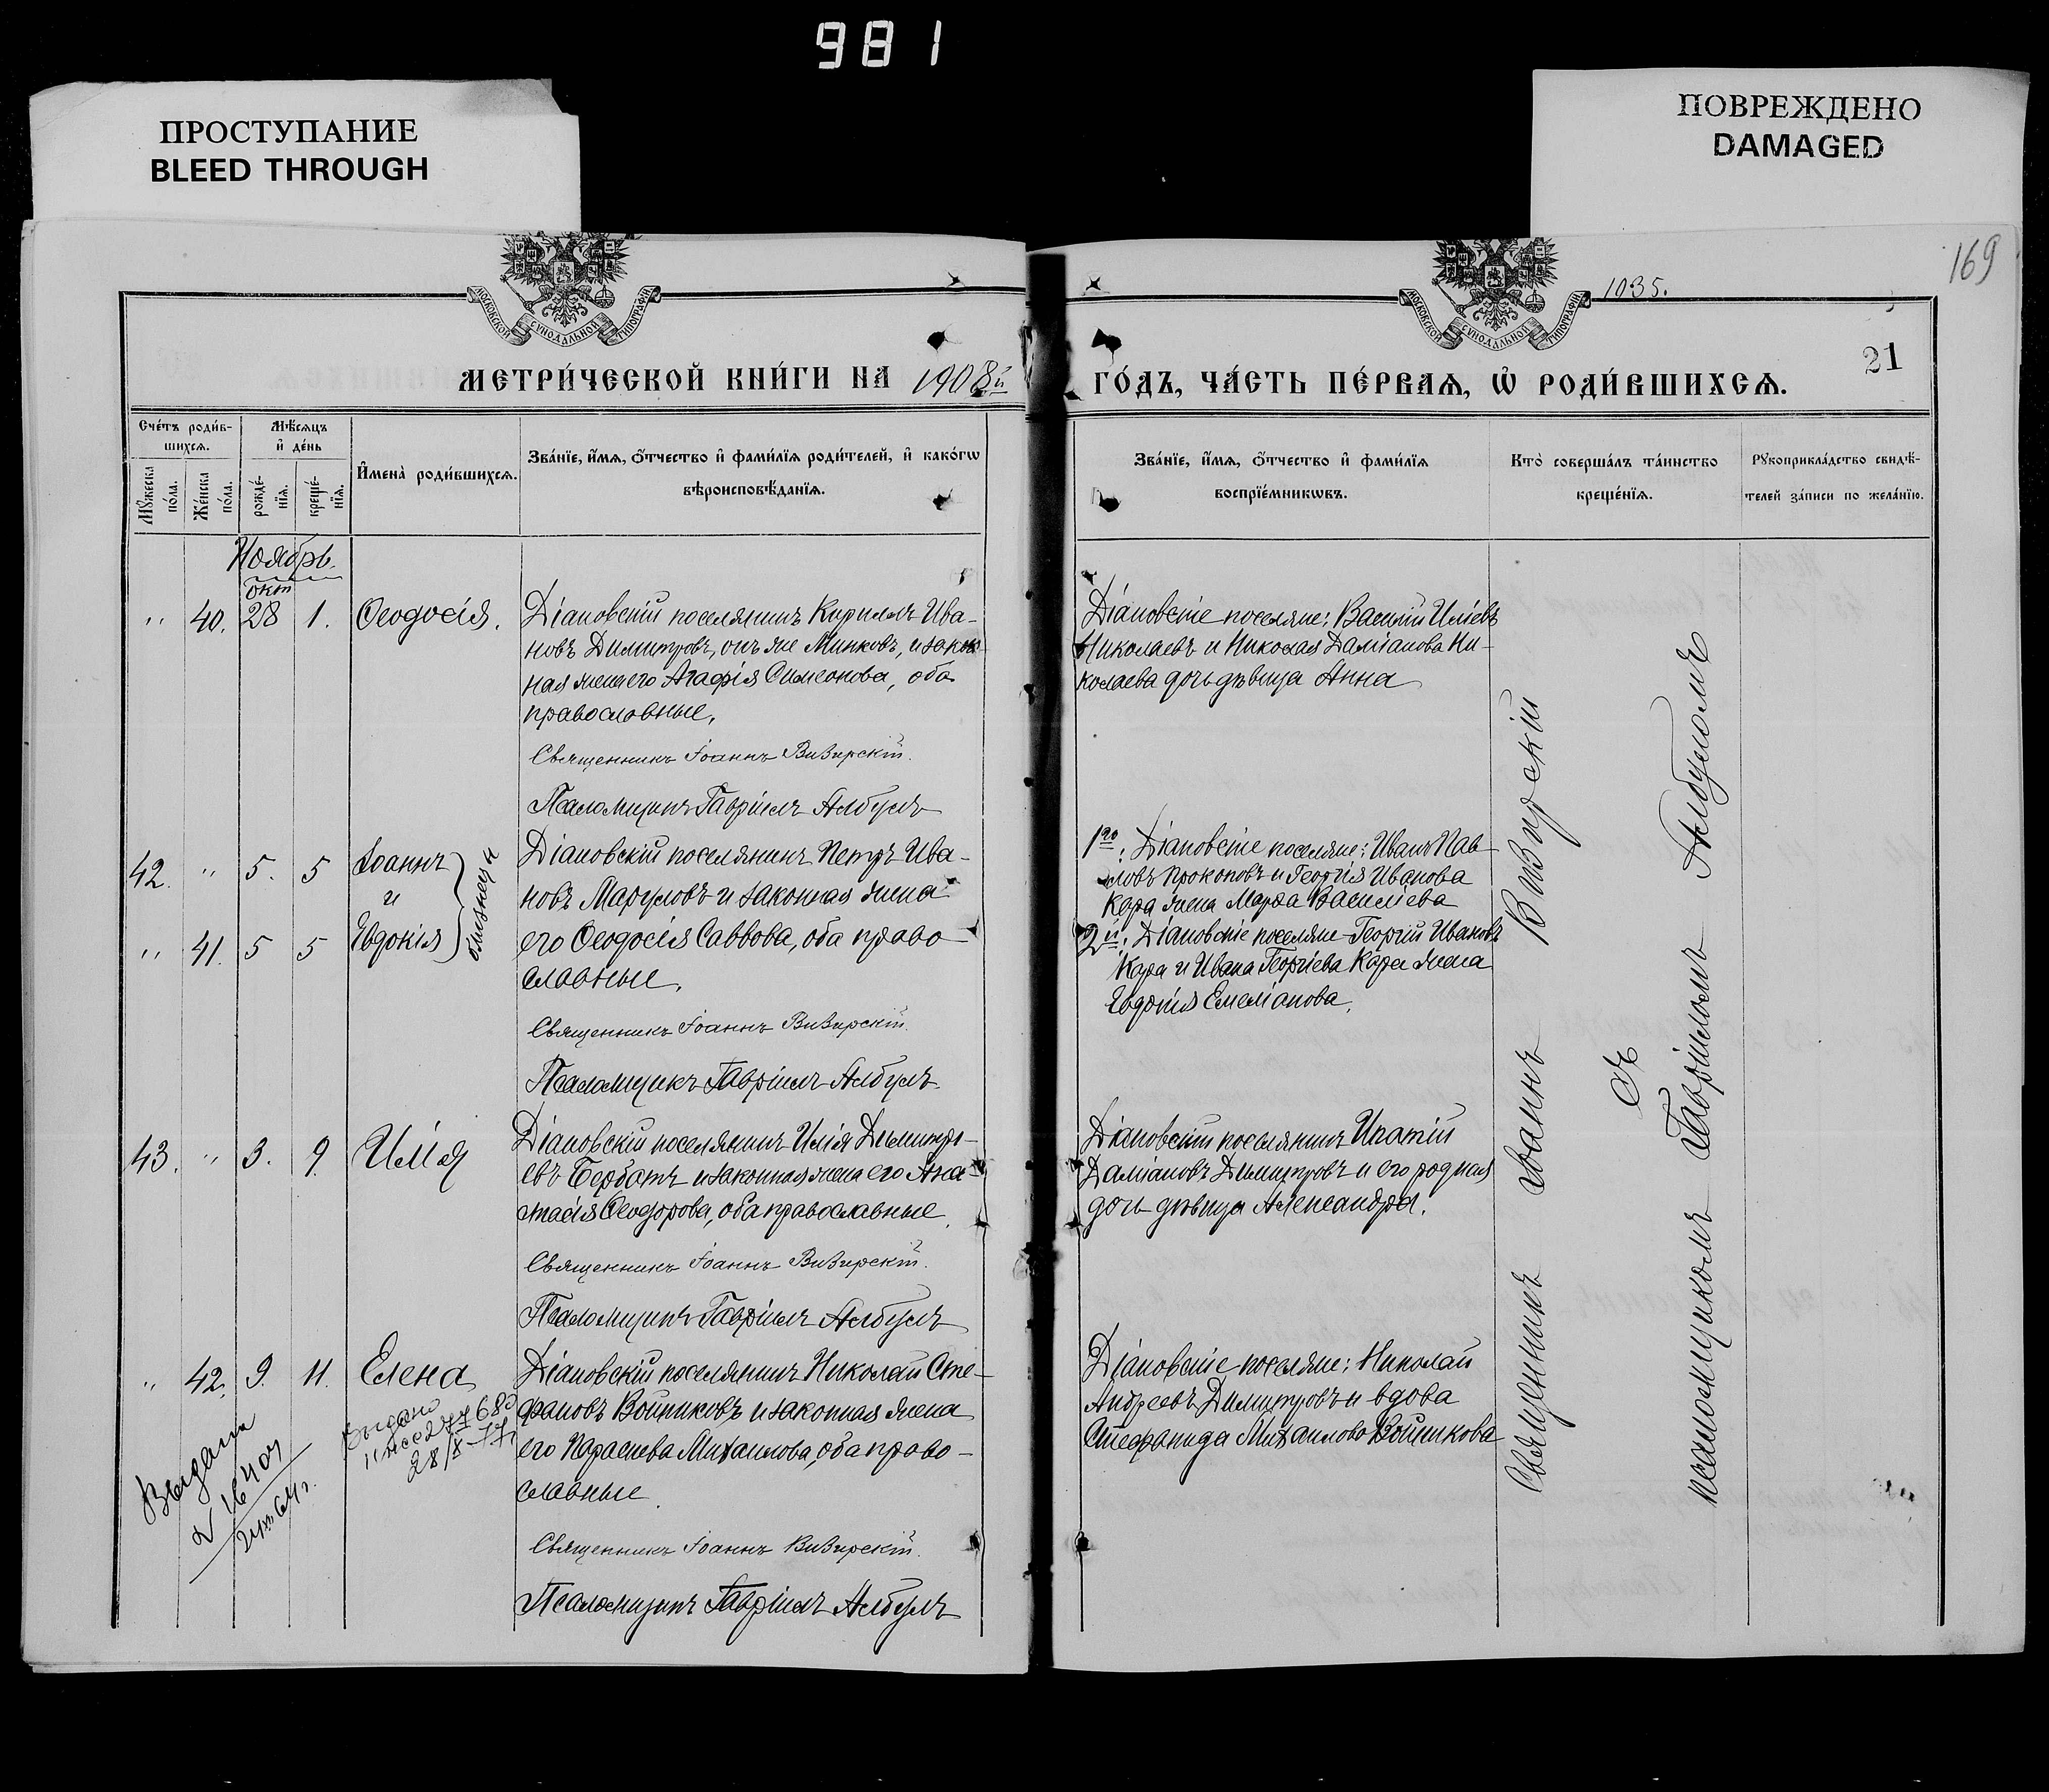 981
ПРОСТУПАНИЕ
BLEED THROUGH
ПОВРЕЖДЕНО
DAMAGED
169
1035.
МОСКОВСКОЙ СѴНОДАЛЬНОЙ ТИПОГРАФІИ
МОСКОВСКОЙ СѴНОДАЛЬНОЙ ТИПОГРАФІИ
21
МЕТРИ́ЧЕСКОЙ КНИ́ГИ НА 1908й
ГО́ДЪ, ЧА́СТЬ ПЕ́РВАѦ, Ѡ҆ РОДИ́ВШИХСѦ.
Сче́тъ роди́в-
шихсѧ.
Мꙋжеска по́ла.
Же́нска по́ла.
Мѣ́сѧцъ
и҆ де́нь
рожде́-
нїѧ.
креще́-
нїѧ.
И҆мена̀ роди́вшихсѧ.
Зва́нїе, и҆́мѧ, ѻ҆́тчество и҆ фами́лїѧ роди́телей, и҆ како́гѡ
вѣроисповѣ́данїѧ.
Зва́нїе, и҆́мѧ, ѻ҆́тчество и҆ фами́лїѧ
воспрїе́мникѡвъ.
Кто̀ соверша́лъ та́инство
креще́нїѧ.
Рꙋкоприкла́дство свидѣ́-
телей за́писи по жела́нїю.
Ноябрь.
окт
" 40. 28 1. Ѳеодосія.
Діановскій поселянинъ Кириллъ Ива-
новъ Димитровъ, онъ же Минковъ, и закон-
ная жена его Агафія Симеонова, оба
православные.
Священникъ Іоаннъ Визирскій.
Псаломщикъ Гавріилъ Албулъ
Діановскіе поселяне: Василій Иліевъ
Николаевъ и Николая Даміанова Ни-
колаева дочь дѣвица Анна
42. " 5. 5 Іоаннъ
и
" 41. 5 5 Евдокія
близнецы
Діановскій поселянинъ Петръ Ива-
новъ Маруловъ и законная жена
его Ѳеодосія Саввова, оба право-
славные.
Священникъ Іоаннъ Визирскій.
Псаломщикъ Гавріилъ Албулъ
1го: Діановскіе поселяне: Иванъ Пав-
ловъ Прокоповъ и Георгія Иванова
Кара жена Марѳа Василіева
2й: Діановскіе поселяне Георгій Ивановъ
Кара и Ивана Георгіева Кара жена
Евдокія Емеліанова.
43. " 3. 9. Илія
Діановскій поселянинъ Илія Димитрі-
евъ Бербатъ и законная жена его Ана-
стасія Ѳеодорова, оба православные
Священникъ Іоаннъ Визирскій.
Псаломщикъ Гавріилъ Албулъ
Діановскій поселянинъ Ипатій
Даміановъ Димитровъ и его родная
дочь дѣвица Александра.
" 42. 9. 11. Елена
Діановскій поселянинъ Николай Сте-
фановъ Войниковъ и законная жена
его Параскева Михаилова, оба право-
славные
Священникъ Іоаннъ Визирскій.
Псаломщикъ Гавріилъ Албулъ
Діановскіе поселяне: Николай
Андреевъ Димитровъ и вдова
Стефанида Михаилова Войникова
Выдано
28/X-77
Священникъ Іоаннъ Визирскій
съ
псаломщикомъ Гавріиломъ Албуломъ